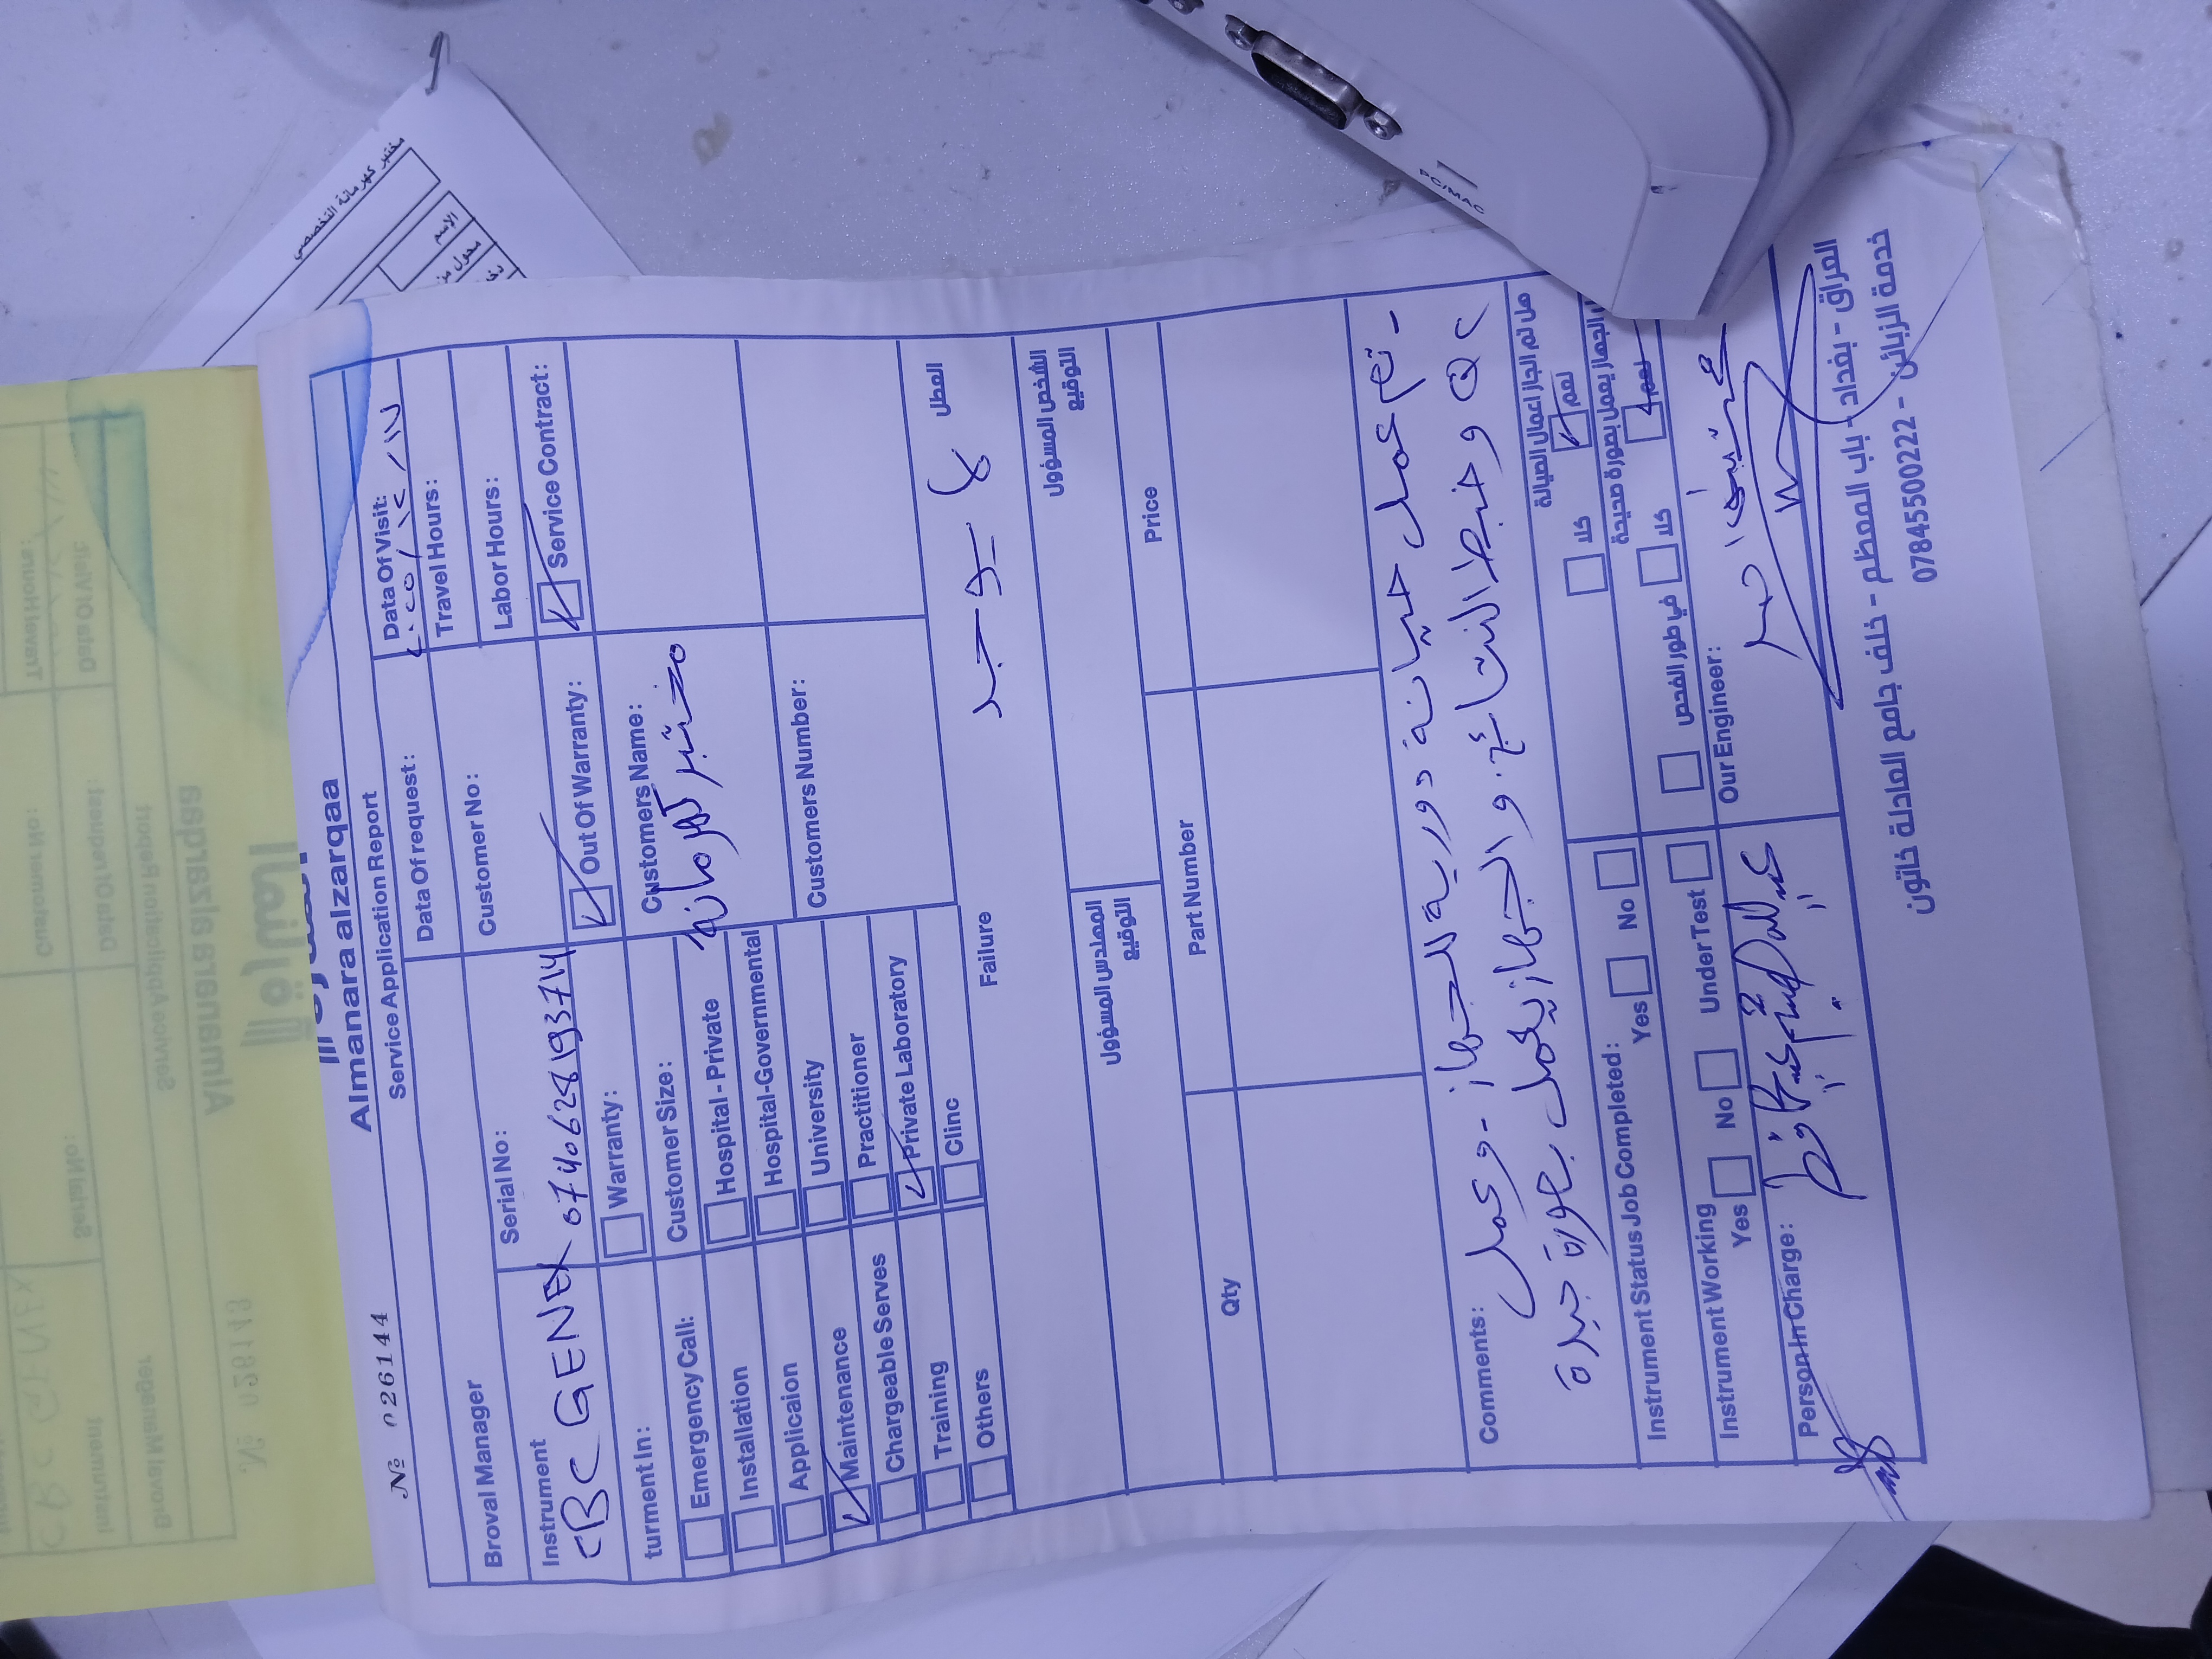 № 026144
Almanara alzarqaa
Service Application Report
Broval Manager
Data Of request:
Data Of Visit:
Travel Hours:
Instrument
CBC GENEX
Serial No:
Customer No:
Labor Hours:
turment In:
Warranty:
Out Of Warranty:
Service Contract:
Emergency Call:
Installation
Applicaion
Maintenance
Chargeable Serves
Training
Others
Customer Size:
Hospital - Private
Hospital-Governmental
University
Practitioner
Private Laboratory
Clinc
Customers Name:
مختبر كهرمانة
Customers Number:
Failure
العطل
المهندس المسؤول
التوقيع
الشخص المسؤول
التوقيع
Qty
Part Number
Price
Comments:
- تم عمل صيانة دورية للجهاز - وعمل
QC وضبط النتائج. و الجهاز يعمل بصورة جيدة
Instrument Status Job Completed:
Yes
No
هل تم انجاز اعمال الصيانة
كلا
نعم
Instrument Working
Yes
No
Under Test
الجهاز يعمل بصورة صحيحة
في طور الفحص
كلا
نعم
Person In Charge:
Our Engineer:
العراق - بغداد - باب المعظم - خلف جامع العادلة خاتون
خدمة الزبائن - 07845500222
مختبر كهرمانة التخصصي
الإسم
PC/MAC
№ 026143
Almanara alzarqaa
Service Application Report
Broval Manager
Data Of request:
Data Of Visit:
Travel Hours:
Instrument
CBC GENEX
Serial No:
Customer No: